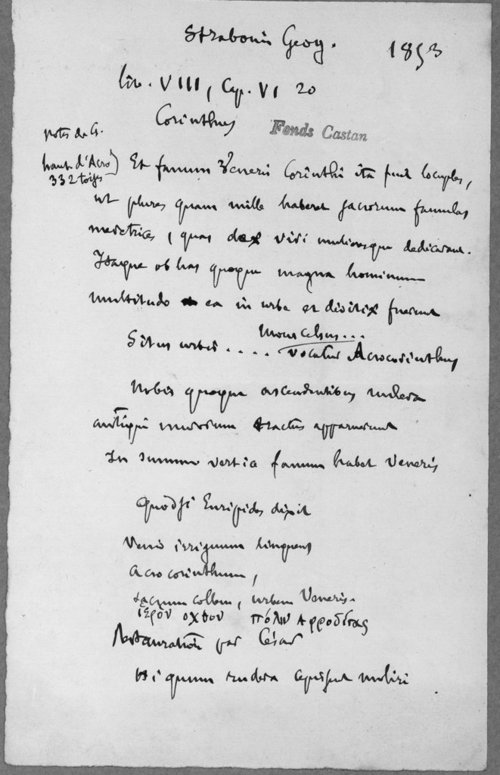 Strabonis Geog.
1853
liv. VIII, Cap. VI 20
Corinthus
Fonds Castan
notes de G.
haut. d'Acro)
332 toises
Et fanum Veneris Corinthi ita fuit locuples,
ut plures quam mille haberet sacrorum famulas
meretrices, quas deæ viri mulieresque dedicarant.
Itaque ob has quoque magna hominum
multitudo ea in urbe et divitiæ fuerunt
mons celsus...
Situs urbis .... vocatur Acrocorinthus
Nobis quoque ascendentibus rudera
antiqui murorum tractus apparuerunt
In summo vertice fanum habet Veneris
Quod si Euripides dixit
Venio irriguum linquens
Acrocorinthum,
sacrum collem, urbem Veneris.
ἱερον οχθον πόλιν Αφροδίτας
Restauration par César
ubi quum rudera moliri